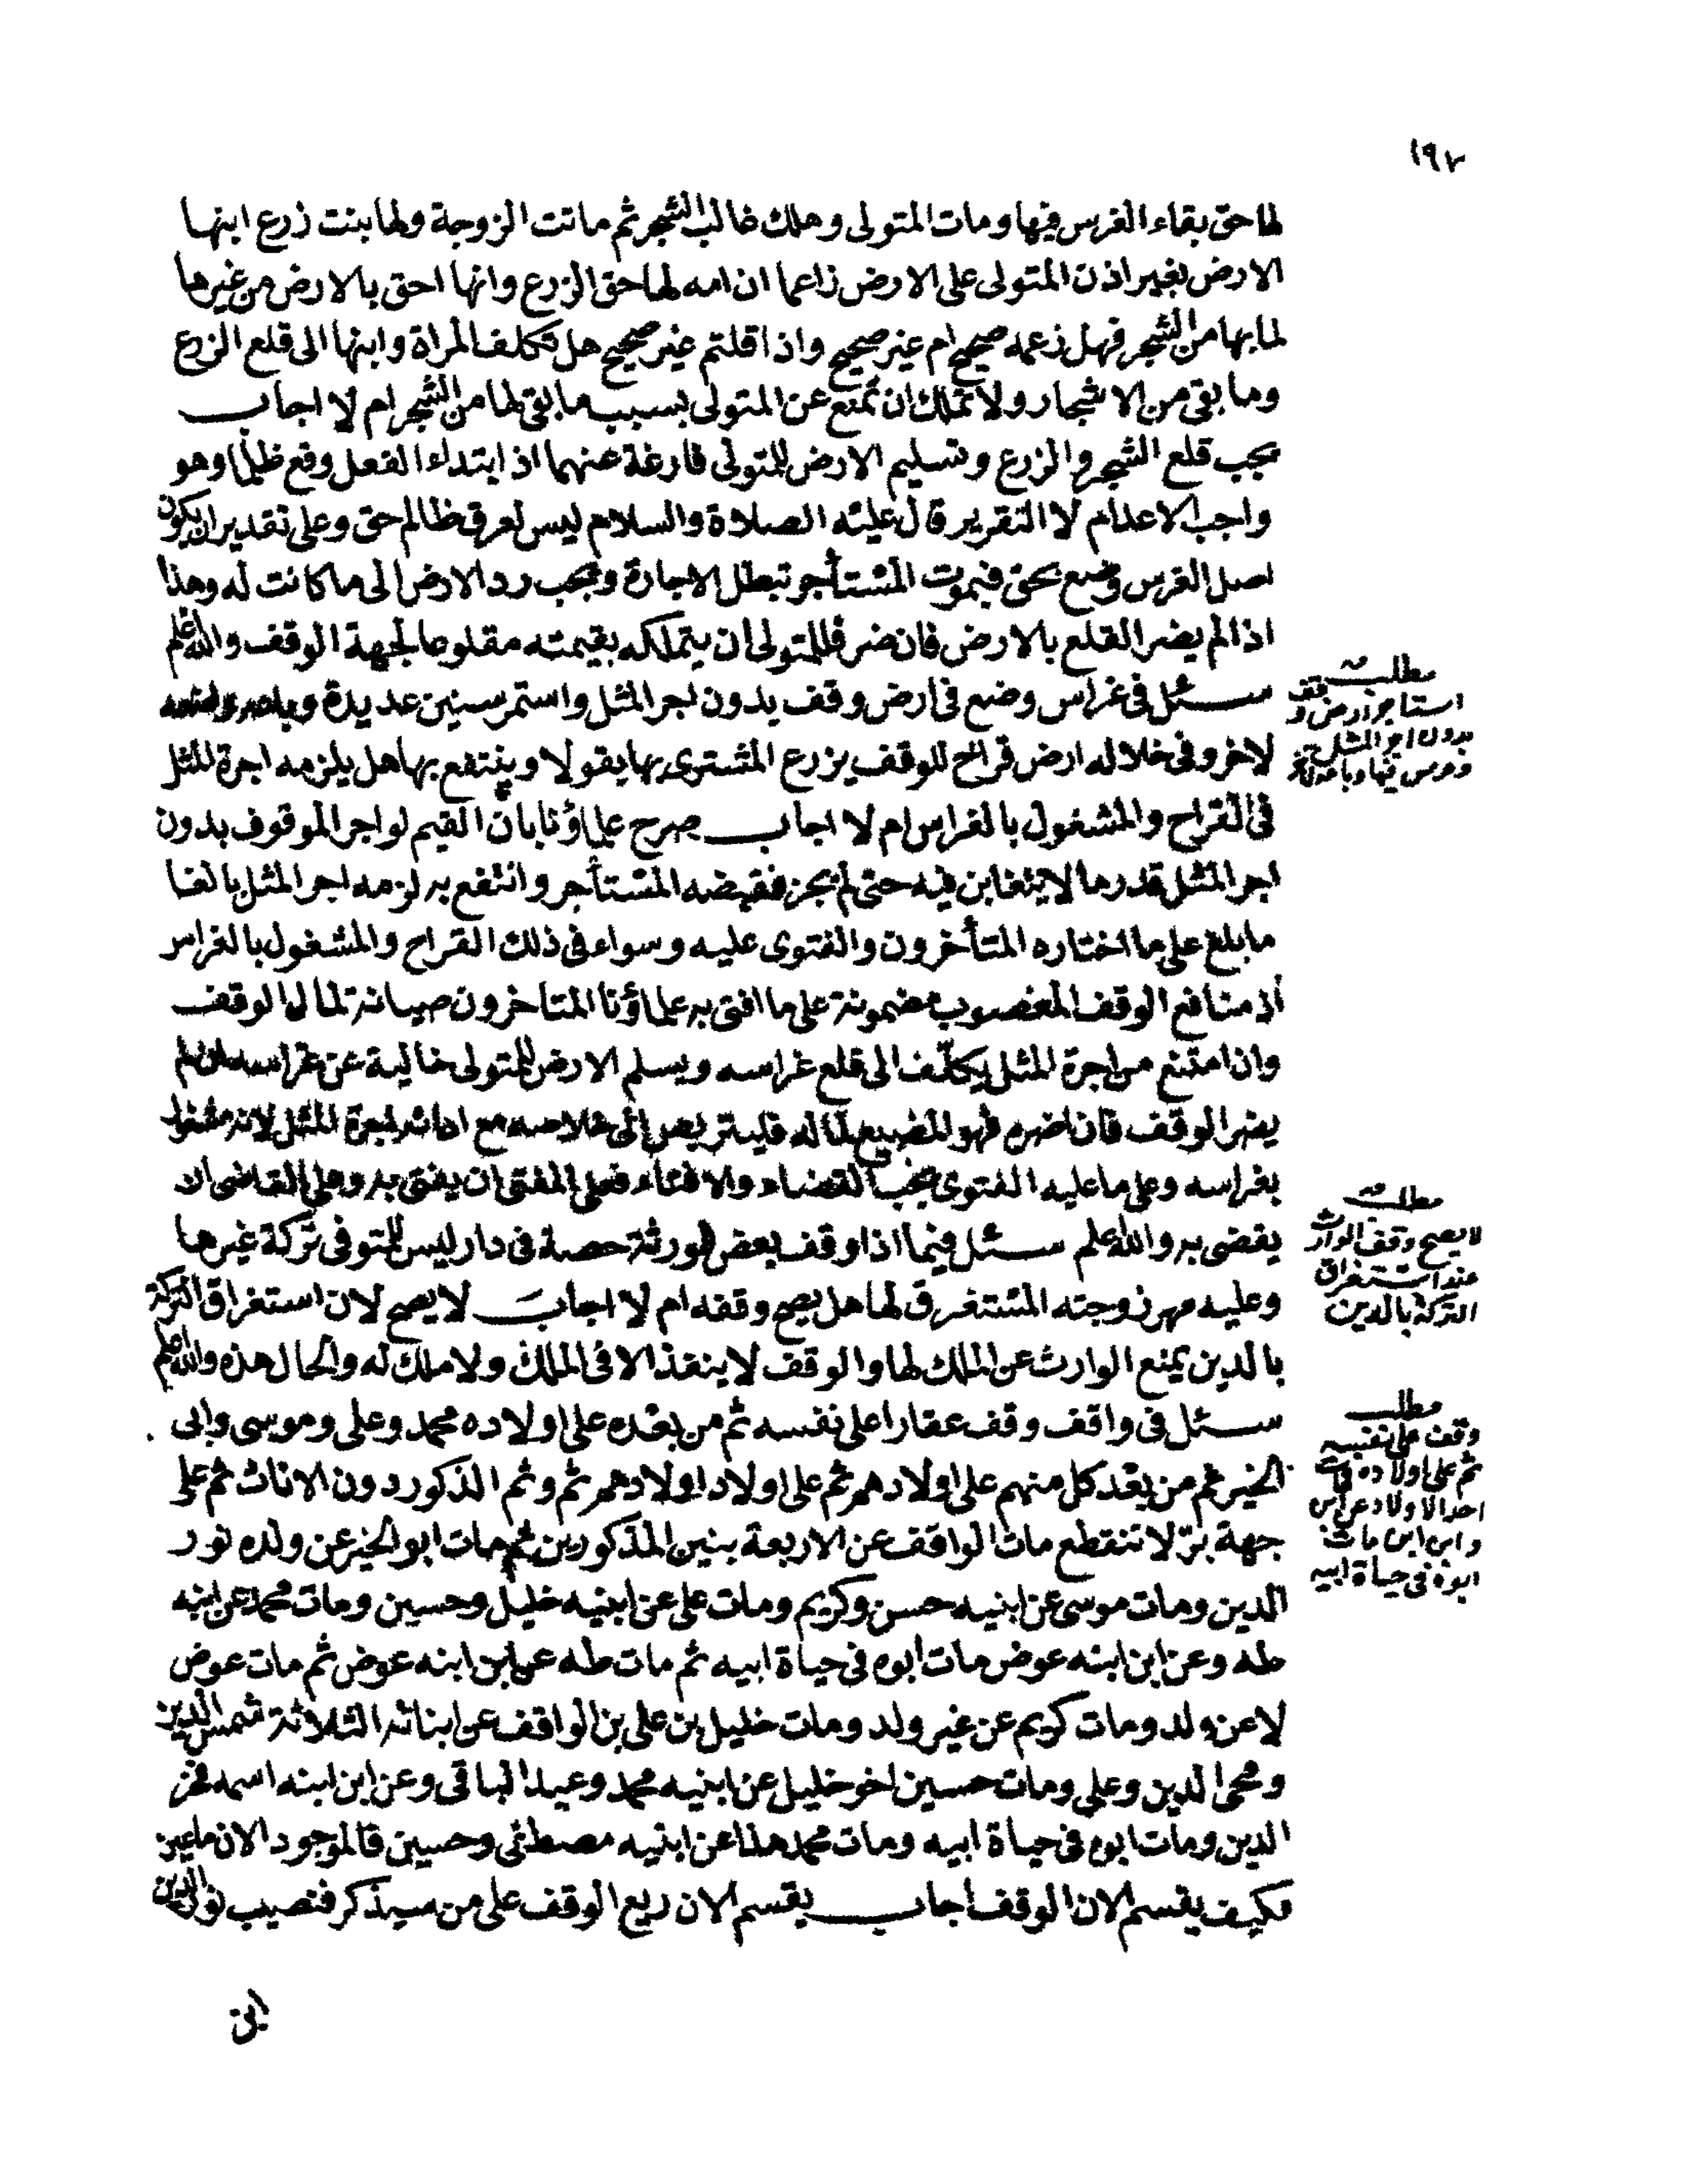 ١٩٧
لها حق بقاء الغرس فيها ومات المتولى وهلك غالب الشجر ثم ماتت الزوجة ولها بنت زرع ابنها
الارض بغير اذن المتولى على الارض زاعما ان امه لها حق الزرع وانها احق بالارض من غيرها
لما بها من الشجر فهل زعمه صحيح ام غير صحيح واذا قلتم غير صحيح هل تكلف المراة وابنها الى قلع الزرع
وما بقى من الاشجار ولا تملك ان تمنع عن المتولى بسبب ما بقى لها من الشجر ام لا اجاب
يجب قلع الشجر والزرع وتسليم الارض للمتولى فارغة عنهما اذ ابتداء الفعل وقع ظلما وهو
واجب الاعدام لا التقرير قال عليه الصلاة والسلام ليس لعرق ظالم حق وعلى تقدير ان يكون
اصل الغرس وضع بحق فبموت المستأجر تبطل الاجارة ويجب رد الارض الى ما كانت له وهذا
اذا لم يضر القلع بالارض فان ضر فللمتولى ان يتملكه بقيمته مقلوعا لجهة الوقف والله اعلم
سئل فى غراس وضع فى ارض وقف بدون اجر المثل واستمر سنين عديدة وباعه واضعه
لاخر وفى خلاله ارض قراح للوقف يزرع المشترى بها بقولا وينتفع بها هل يلزمه اجرة المثل
فى القراح والمشغول بالغراس ام لا اجاب صرح علماؤنا بان القيم لو اجر الموقوف بدون
اجر المثل قدر ما لا يتغابن فيه حتى لم يجز فقبضه المستأجر وانتفع به لزمه اجر المثل بالغا
ما بلغ على ما اختاره المتأخرون والفتوى عليه وسواء فى ذلك القراح والمشغول بالغراس
اذ منافع الوقف المغصوب مضمونة على ما افتى به علماؤنا المتاخرون صيانة لمال الوقف
وان امتنع من اجرة المثل يكلف الى قلع غراسه ويسلم الارض للمتولى خالية عن غراسه ان لم
يضر الوقف فان اضره فهو المضيع لماله فليتربص الى خلاصه مع ادائه اجرة المثل لانه مشغول
بغراسه وعلى ما عليه الفتوى يجب القضاء والافتاء فعلى المفتى ان يفتى به وعلى القاضى ان
يقضى به والله اعلم سئل فيما اذا وقف بعض الورثة حصة فى دار ليس للمتوفى تركة غيرها
وعليه مهر زوجته المستغرق لها هل يصح وقفه ام لا اجاب لا يصح لان استغراق التركة
بالدين يمنع الوارث عن الملك لها والوقف لا ينفذ الا فى الملك ولا ملك له والحال هذه والله اعلم
سئل فى واقف وقف عقارا على نفسه ثم من بعده على اولاده محمد وعلى وموسى وابى
الخير ثم من بعد كل منهم على اولادهم ثم على اولاد اولادهم ثم وثم الذكور دون الاناث ثم على
جهة بر لا تنقطع مات الواقف عن الاربعة بنين المذكورين ثم مات ابو الخير عن ولده نور
الدين ومات موسى عن ابنيه حسن وكريم ومات على عن ابنيه خليل وحسين ومات محمد عن ابنه
طه وعن ابن ابنه عوض مات ابوه فى حياة ابيه ثم مات طه عن ابن ابنه عوض ثم مات عوض
لا عن ولد ومات كريم عن غير ولد ومات خليل بن على بن الواقف عن ابنائه الثلاثة شمس الدين
ومحى الدين وعلى ومات حسين اخو خليل عن ابنيه محمد وعبد الباقى وعن ابن ابنه اسمه فخر
الدين ومات ابوه فى حياة ابيه ومات محمد هذا عن ابنيه مصطفى وحسين فالموجود الان
فكيف يقسم الان الوقف اجاب يقسم الان ريع الوقف على من سيذكر فنصيب نور الدين
مطلب
استاجر ارض وقف
بدون اجر المثل
وغرس فيها وباعه لاخر
مطلب
لا يصح وقف الوارث
عند استغراق
التركة بالدين
مطلب
وقف على نفسه
ثم على اولاده فمات
احد الاولاد عن ابن
وابن ابن مات
ابوه فى حياة ابيه